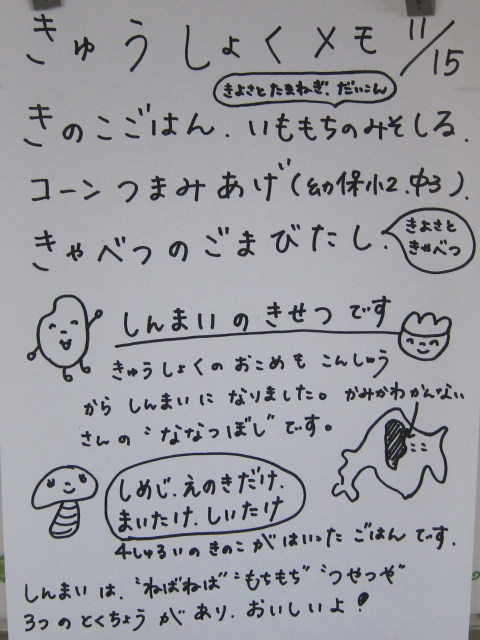 きゅうしょくメモ 11/15
きよさとたまねぎ．だいこん
きのこごはん．いももちのみそしる．
コーンつまみあげ（幼保小2．中3）．
きゃべつのごまびたし．
きよさと
きゃべつ
しんまいのきせつです
きゅうしょくのおこめもこんしゅう
からしんまいになりました。かみかわかんない
さんの〝ななつぼし〟です。
ここ
しめじ．えのきだけ．
まいたけ．しいたけ
4しゅるいのきのこがはいったごはんです．
しんまいは、〝ねばねば〟〝もちもち〟〝つやつや〟
3つのとくちょうがあり．おいしいよ！